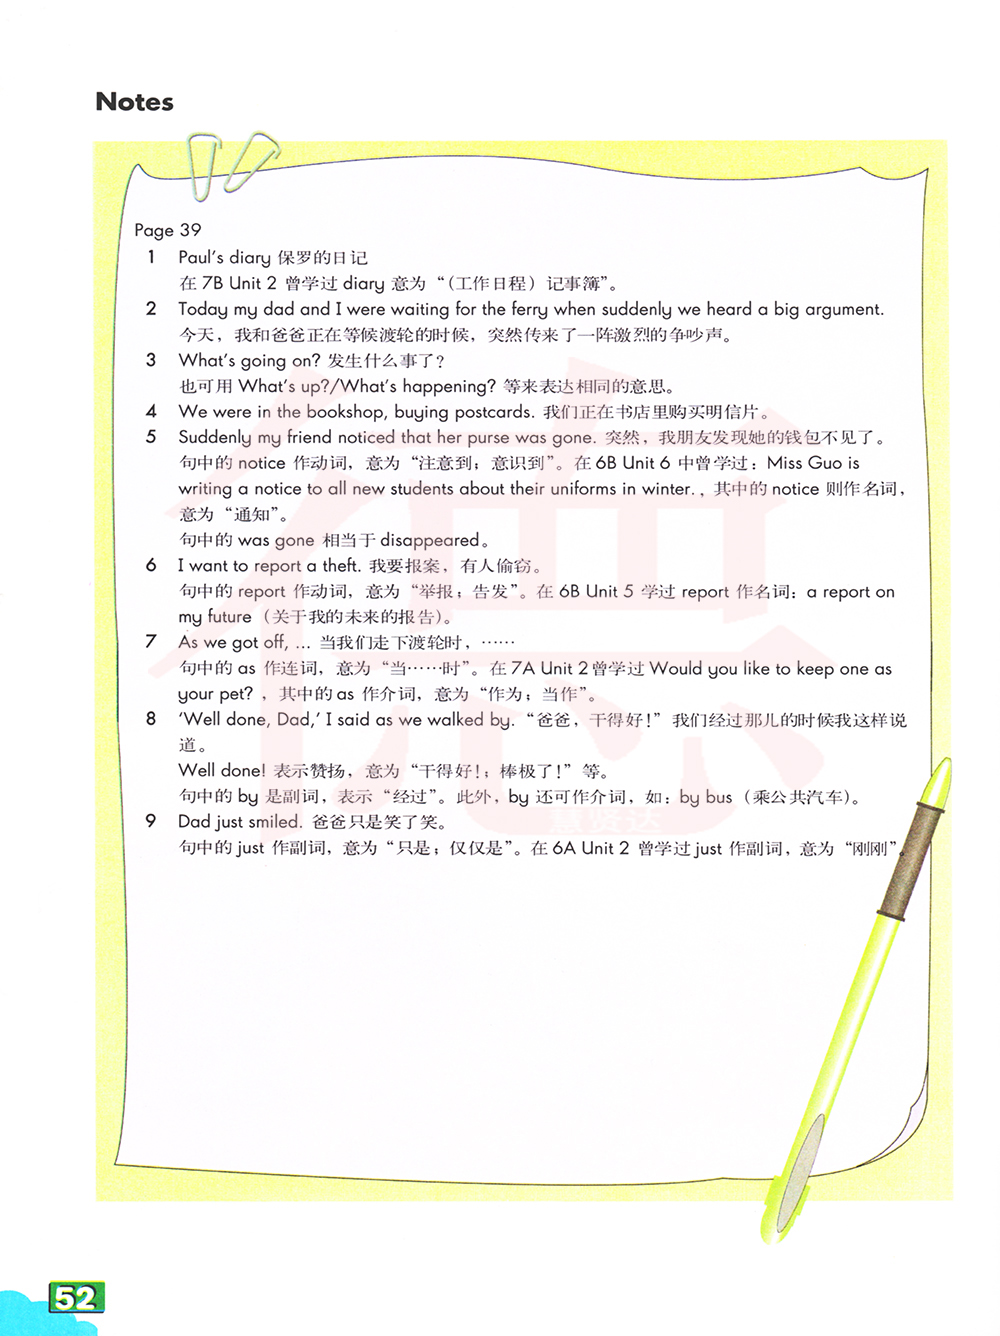 Notes
Page 39
1 Paul's diary 保罗的日记
在 7B Unit 2 曾学过 diary 意为“(工作日程)记事簿”。
2 Today my dad and I were waiting for the ferry when suddenly we heard a big argument.
今天，我和爸爸正在等候渡轮的时候，突然传来了一阵激烈的争吵声。
3 What's going on? 发生什么事了?
也可用 What's up?/What's happening? 等来表达相同的意思。
4 We were in the bookshop, buying postcards. 我们正在书店里购买明信片。
5 Suddenly my friend noticed that her purse was gone. 突然，我朋友发现她的钱包不见了。
句中的 notice 作动词，意为“注意到；意识到”。在 6B Unit 6 中曾学过：Miss Guo is
writing a notice to all new students about their uniforms in winter.，其中的 notice 则作名词，
意为“通知”。
句中的 was gone 相当于 disappeared。
6 I want to report a theft. 我要报案，有人偷窃。
句中的 report 作动词，意为“举报；告发”。在 6B Unit 5 学过 report 作名词：a report on
my future（关于我的未来的报告）。
7 As we got off, ... 当我们走下渡轮时，……
句中的 as 作连词，意为“当……时”。在 7A Unit 2 曾学过 Would you like to keep one as
your pet?，其中的 as 作介词，意为“作为；当作”。
8 ‘Well done, Dad,’ I said as we walked by. “爸爸，干得好!”我们经过那儿的时候我这样说
道。
Well done! 表示赞扬，意为“干得好!；棒极了!”等。
句中的 by 是副词，表示“经过”。此外，by 还可作介词，如：by bus（乘公共汽车）。
9 Dad just smiled. 爸爸只是笑了笑。
句中的 just 作副词，意为“只是；仅仅是”。在 6A Unit 2 曾学过 just 作副词，意为“刚刚”。
慧贤达
52